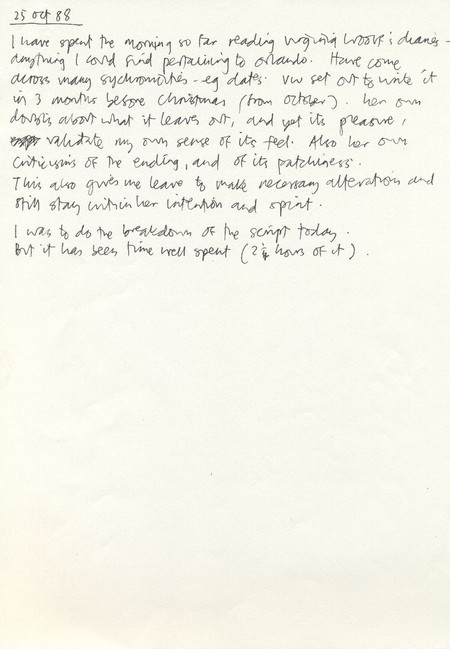 25 Oct 88
I have spent the morning so far reading Virginia Woolf's diaries -
anything I could find pertaining to Orlando. Have come
across many sychronicities - eg dates. VW set out to write it
in 3 months before Christmas (from October). Her own
doubts about what it leaves out, and yet its pleasure,
validate my own sense of its feel. Also her own
criticisms of the ending, and of its patchiness.
This also gives me leave to make necessary alterations and
still stay within her intention and spirit.
I was to do the breakdown of the script today.
But it has been time well spent (2½ hours of it).